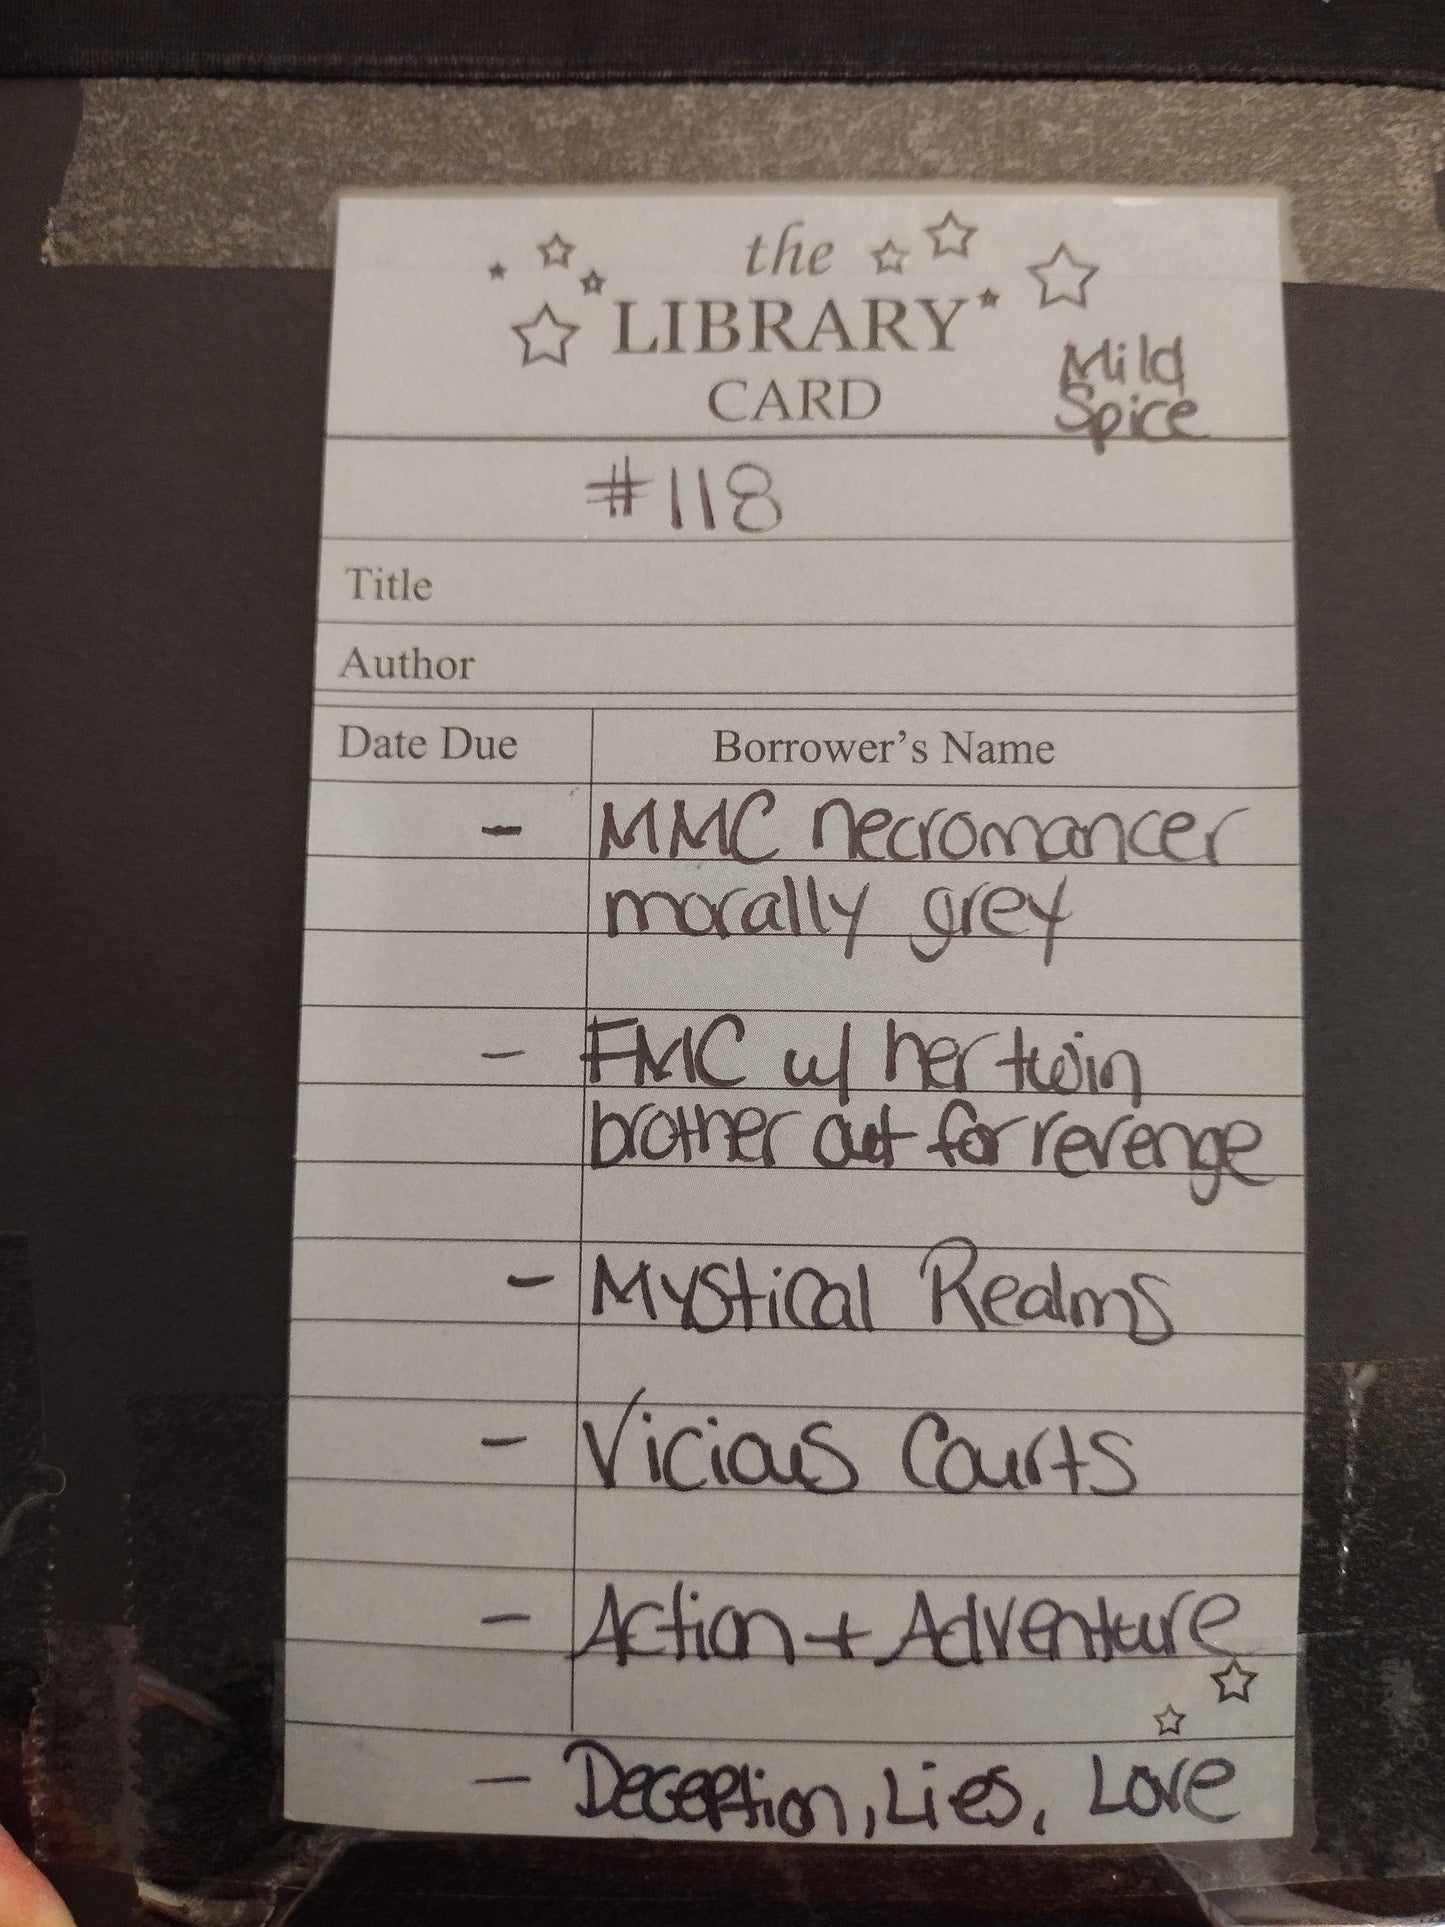 the
LIBRARY
CARD
Mild
Spice
#118
Title
Author
Date Due Borrower's Name
- MMC necromancer
morally grey
- FMC w/ her twin
brother out for revenge
- Mystical Realms
- Vicious Courts
- Action + Adventure
- Deception, Lies, Love